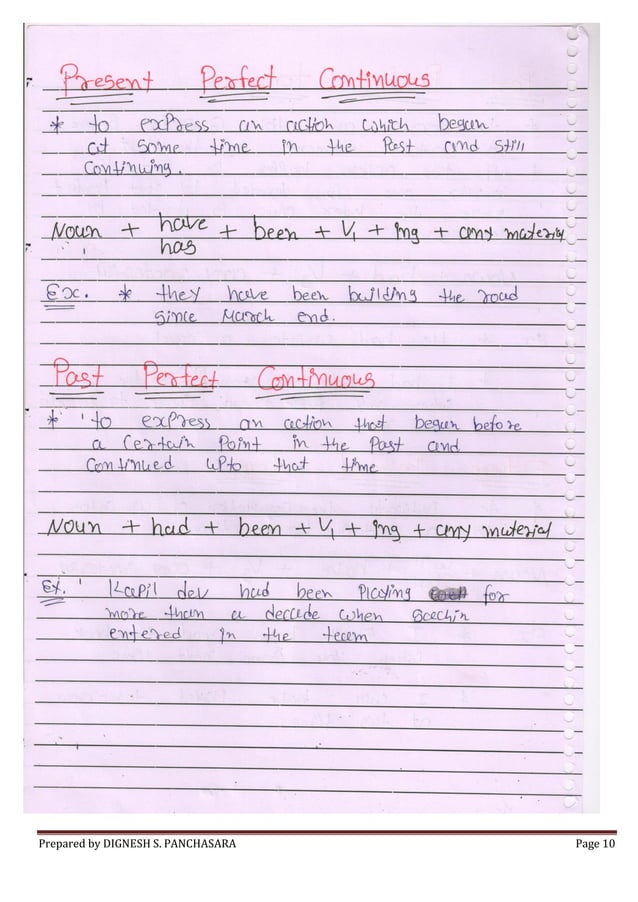 Present Perfect Continuous
* to express an action which began
at some time in the Past and still
Continuing.
Noun + have + been + V1 + ing + any material
has
Ex. * they have been building the road
since March end.
Past Perfect Continuous
* to express an action that began before
a Certain Point in the Past and
Continued upto that time
Noun + had + been + V1 + ing + any material
Ex. Kapil dev had been Playing for
more than a decade when Sachin
entered in the team
Prepared by DIGNESH S. PANCHASARA Page 10